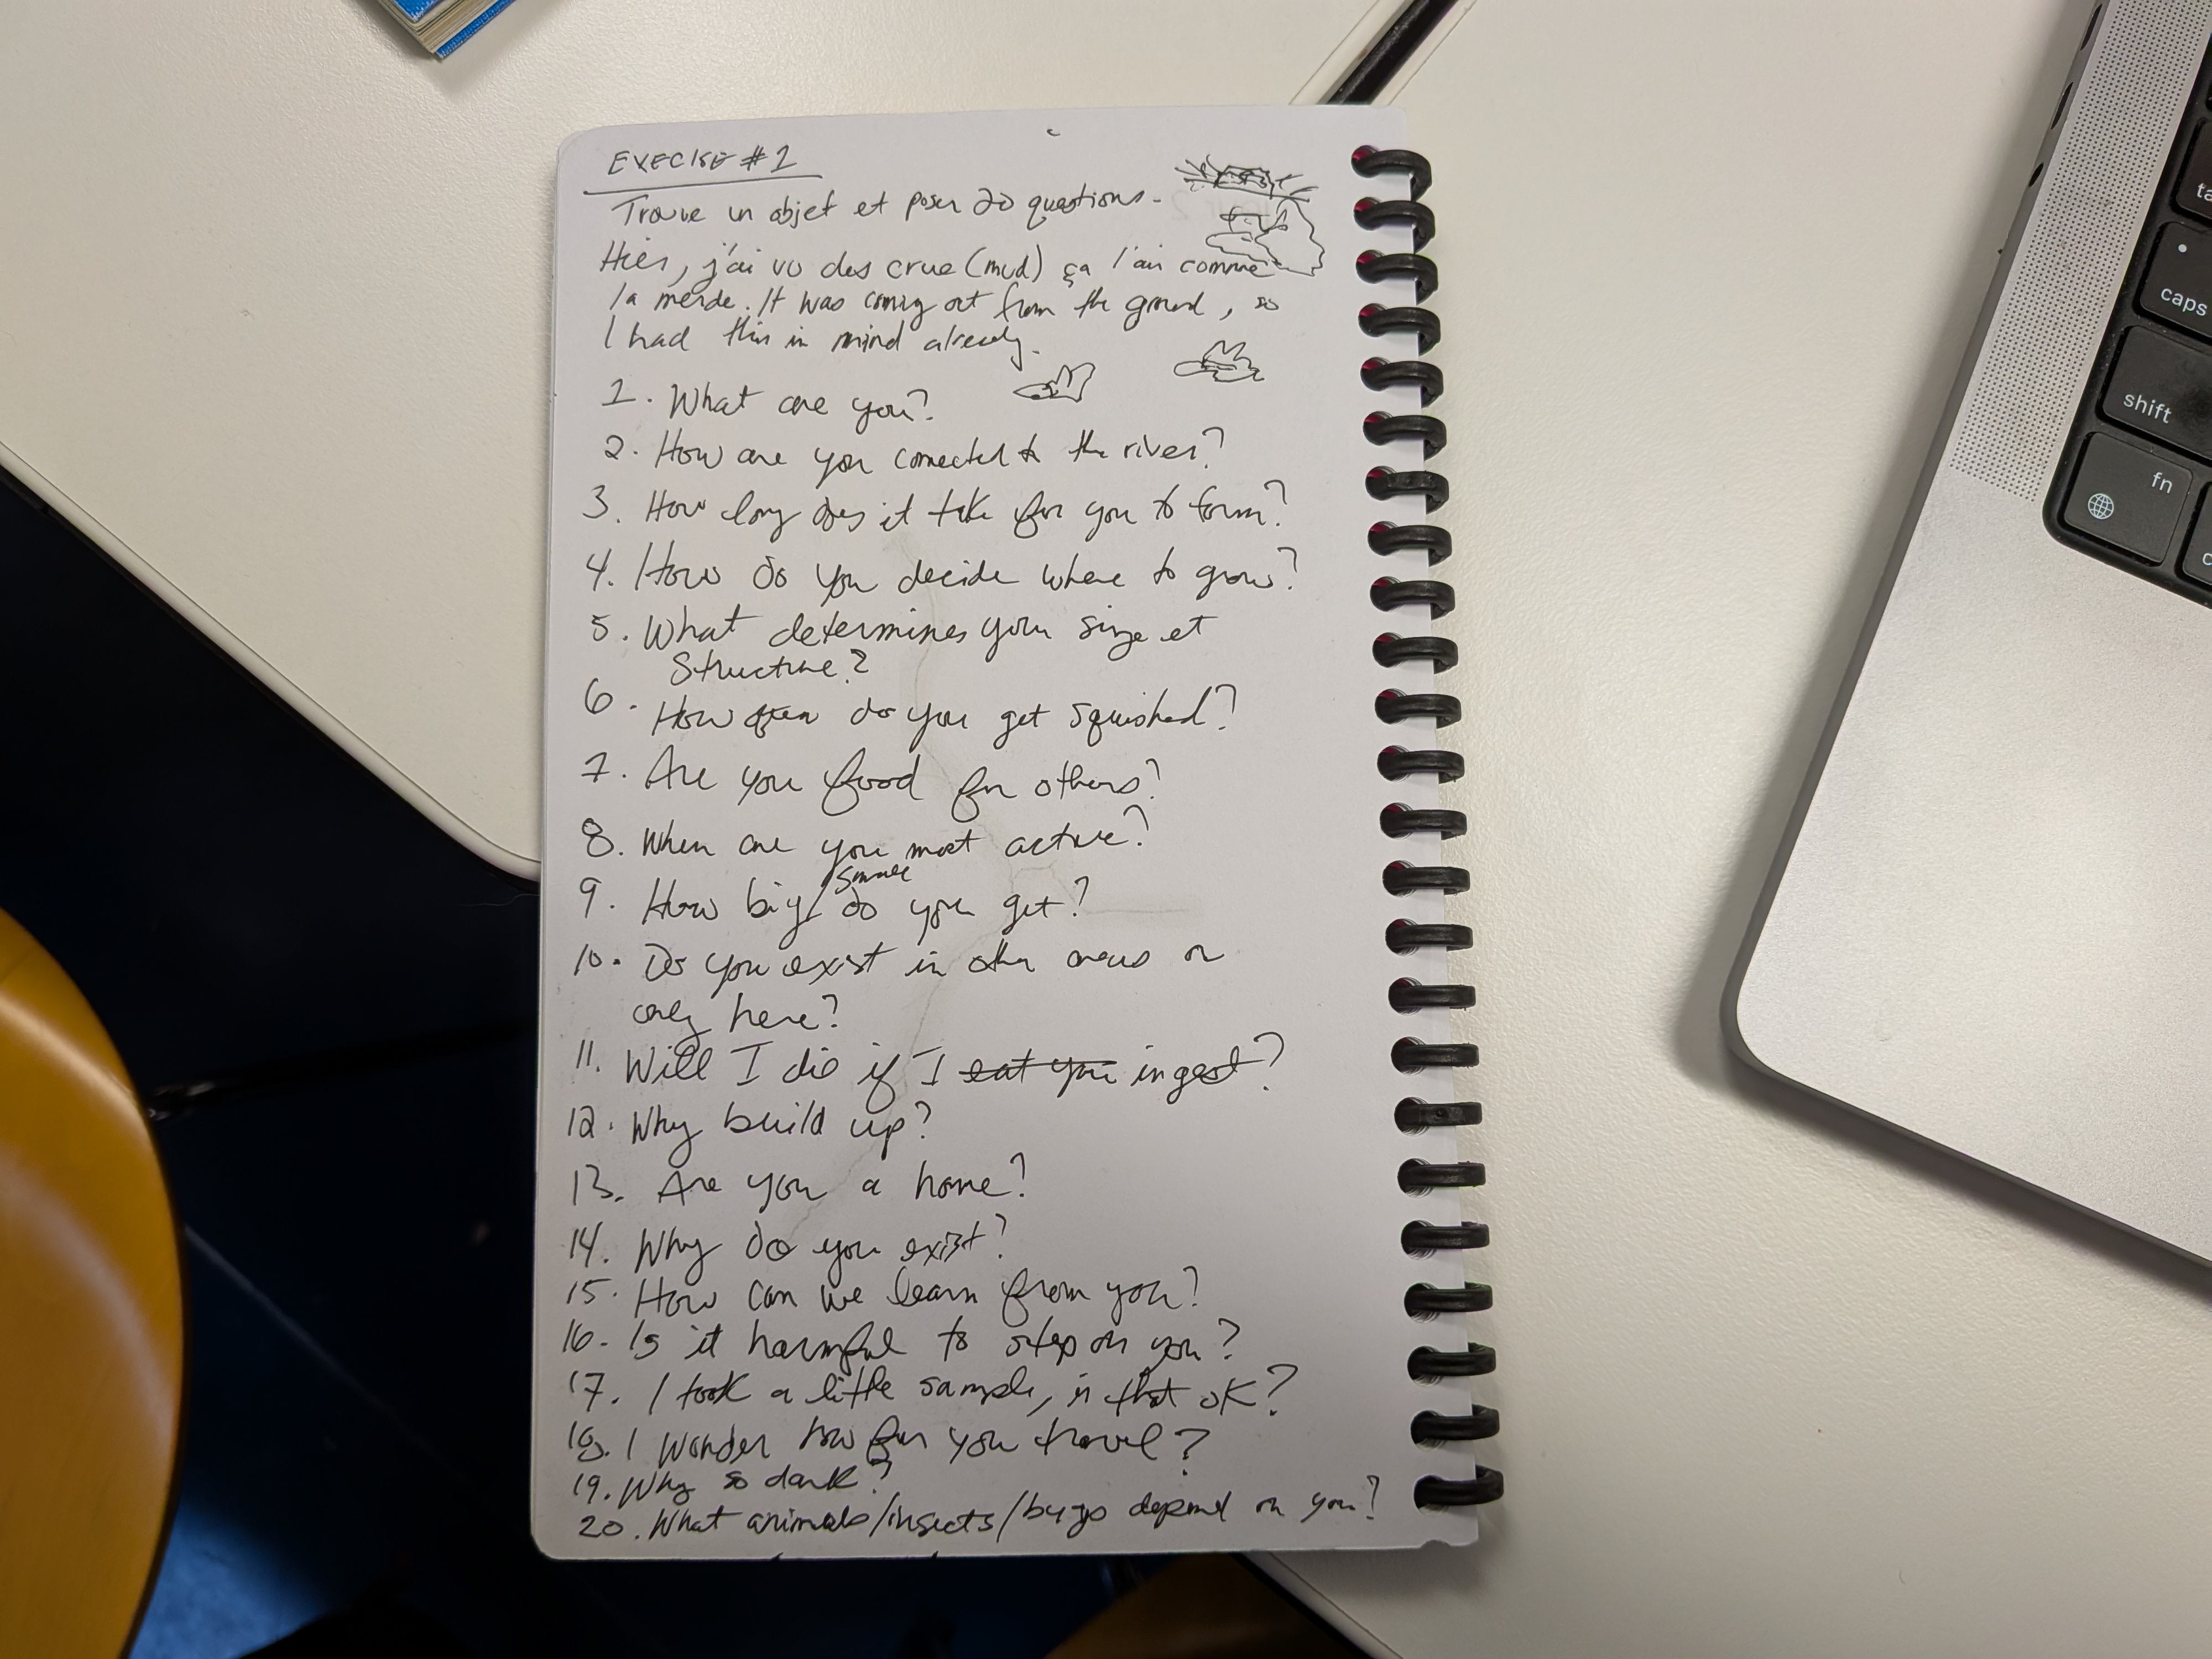 EXECISE #1
Trouve un objet et poser 20 questions.
Hier, j'ai vu des crue (mud) ça l'air comme
la merde. It was coming out from the ground, so
I had this in mind already.
1. What are you?
2. How are you connected to the river?
3. How long does it take for you to form?
4. How do you decide where to grow?
5. What determines your size et
Structure?
6. How often do you get squished?
7. Are you food for others?
8. When are you most active?
9. How big/small do you get?
10. Do you exist in other areas or
only here?
11. Will I die if I eat you ingest?
12. Why build up?
13. Are you a home?
14. Why do you exist?
15. How can we learn from you?
16. Is it harmful to step on you?
17. I took a little sample, is that OK?
18. I wonder how far you travel?
19. Why so dark?
20. What animals/insects/bugs depend on you?
ta
caps
shift
fn